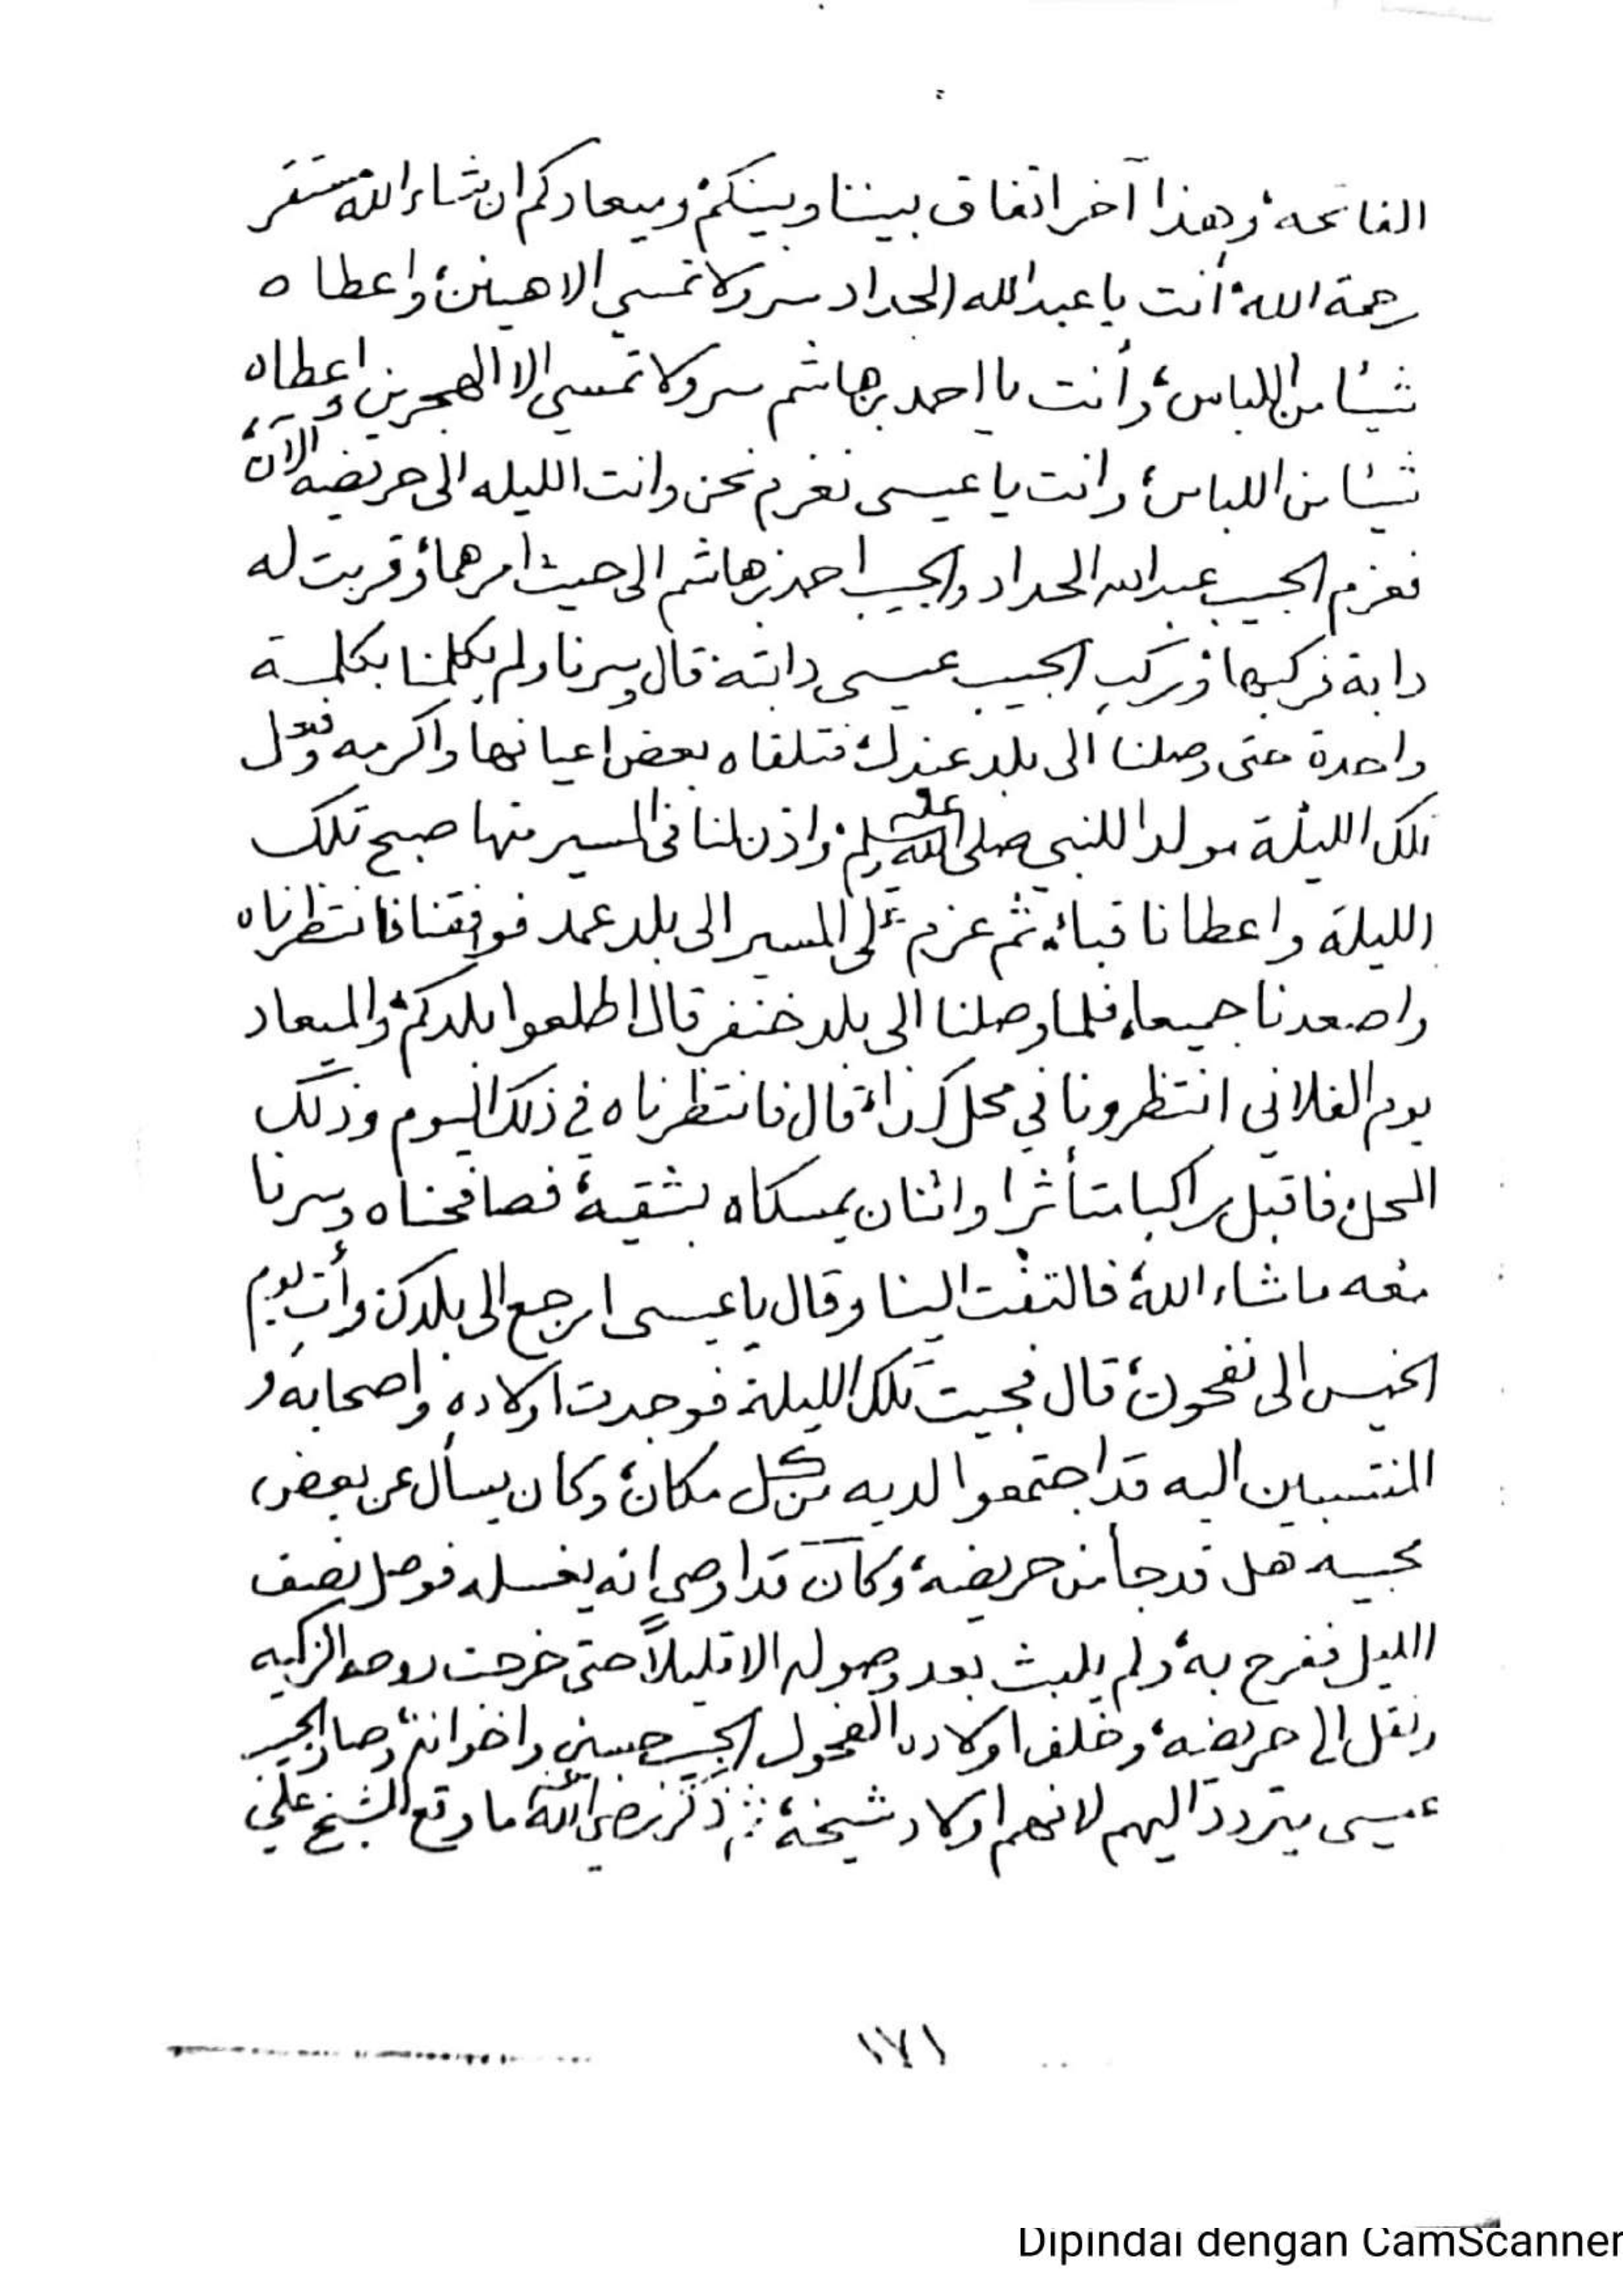 الفاتحة، وهذا آخر اتفاق بيننا وبينكم، وميعادكم ان شاء الله مستقر
رحمة الله، أنت يا عبدالله الحداد سر ولا تمسي الا هينن، واعطاه
شيئا من اللباس، وأنت يا احمد بن هاشم سر ولا تمسي الا الهجرين، واعطاه
شيئا من اللباس، وانت يا عيسى نعزم نحن وانت الليله الى حريضه الآن،
فعزم الحبيب عبدالله الحداد والحبيب احمد بن هاشم الى حيث امرهما، وقربت له
دابة فركبها، وركب الحبيب عيسى دابته، قال وسرنا ولم يكلمنا بكلمة
واحدة حتى وصلنا الى بلد عندل، فتلقاه بعض اعيانها واكرمه
تلك الليلة مولد اللنبي صلى الله عليه وسلم، واذن لنا في المسير منها صبح تلك
الليلة واعطانا قباء، ثم عزم على المسير الى بلد عمد فوافقنا فانتظرناه
واصعدنا جميعا، فلما وصلنا الى بلد خنفر قال اطلعوا بلدكم، والميعاد
يوم الفلاني انتظرونا في محل كذا، قال فانتظرناه في ذلك اليوم وذلك
المحل، فاقبل راكبا متأثرا واثنان يمسكاه بشقيه، فصافحناه وسرنا
معه ماشاء الله، فالتفت الينا وقال يا عيسى ارجع الى بلدك، وأت يوم
الخميس الى نفحون، قال فجيت تلك الليلة، فوجدت اولاده واصحابه و
المنتسبين اليه قد اجتمعوا لديه من كل مكان، وكان يسأل عن بعض
محبيه هل قد جا من حريضه، وكان قد اوصى انه يغسله فوصل نصف
الليل ففرح به، ولم يلبث بعد وصوله الا قليلاً حتى خرجت روحه الزكيه
ونقل الى حريضه، وخلف اولاده الفحول الحبيب حسين واخوانه، وصار الحبيب
عيسى يتردد اليهم لانهم اولاد شيخه، ذكر رضي الله عنه ما وقع للشيخ علي
١٧١
Dipindai dengan CamScanner